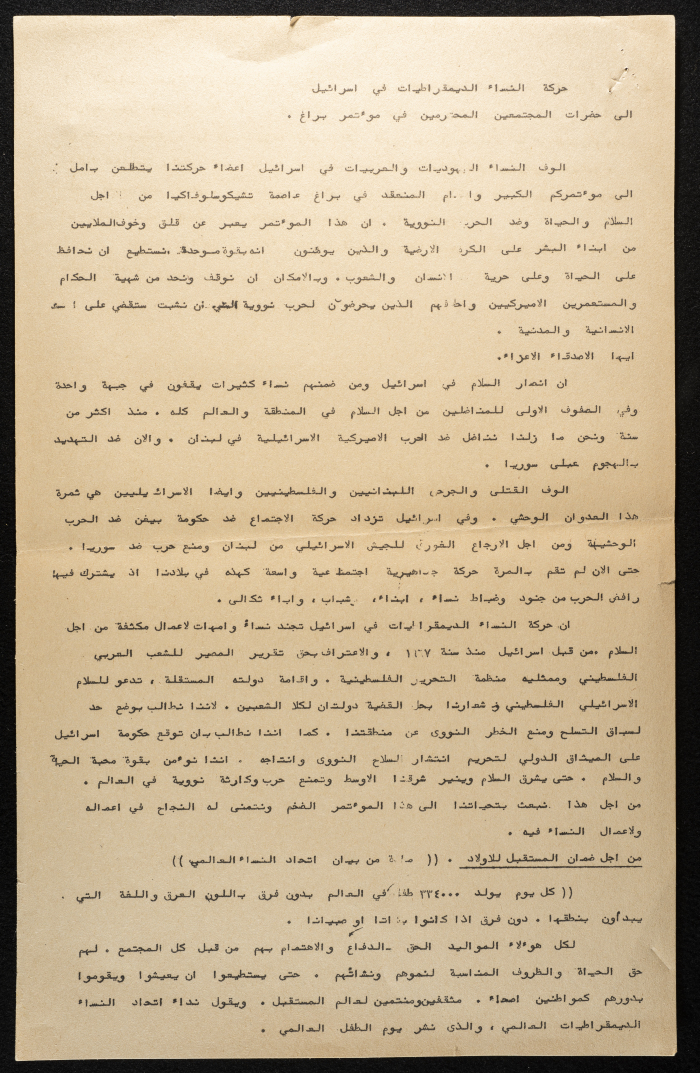 حركة النساء الديمقراطيات في اسرائيل
الى حضرات المجتمعين المحترمين في موءتمر براغ .
الوف النساء اليهوديات والعربيات في اسرائيل اعضاء حركتنا يتطلعن بامل
الى موءتمركم الكبير المنعقد في براغ عاصمة تشيكوسلوفاكيا من اجل
السلام والحياة وضد الحرب النووية . ان هذا الموءتمر يعبر عن قلق وخوف الملايين
من ابناء البشر على الكرة الارضية والذين يوءمنون انه بقوة موحدة نستطيع ان نحافظ
على الحياة وعلى حرية الانسان والشعوب . وبالامكان ان نوقف ونحد من شهية الحكام
والمستعمرين الاميركيين واحلافهم الذين يحرضون لحرب نووية التي ان نشبت ستقضي على
الانسانية والمدنية .
ايها الاصدقاء الاعزاء .
ان انصار السلام في اسرائيل ومن ضمنهم نساء كثيرات يقفون في جبهة واحدة
وفي الصفوف الاولى للمناضلين من اجل السلام في المنطقة والعالم كله . منذ اكثر من
سنة ونحن ما زلنا نناضل ضد الحرب الاميركية الاسرائيلية في لبنان . والان ضد التهديد
بالهجوم على سوريا .
الوف القتلى والجرحى اللبنانيين والفلسطينيين وايضا الاسرائيليين هي ثمرة
هذا العدوان الوحشي . وفي اسرائيل تزداد حركة الاجتماع ضد حكومة بيغن ضد الحرب
الوحشية ومن اجل الارجاع الفوري للجيش الاسرائيلي من لبنان ومنع حرب ضد سوريا .
حتى الان لم تقم بالمرة حركة جماهيرية اجتماعية واسعة كهذه في بلادنا اذ يشترك فيها
رافض الحرب من جنود وضباط نساء ، ابناء ، شباب ، واباء ثكالى .
ان حركة النساء الديمقراطيات في اسرائيل تجند نساءً وامهات لاعمال مكثفة من اجل
السلام من قبل اسرائيل منذ سنة ١٩٦٧ ، والاعتراف بحق تقرير المصير للشعب العربي
الفلسطيني وممثليه منظمة التحرير الفلسطينية . واقامة دولته المستقلة ، تدعو للسلام
الاسرائيلي الفلسطيني و شعارنا بحل القضية دولتان لكلا الشعبين . لاننا نطالب بوضع حد
لسباق التسلح ومنع الخطر النووي عن منطقتنا . كما اننا نطالب بان توقع حكومة اسرائيل
على الميثاق الدولي لتحريم انتشار السلاح النووي وانتاجه . اننا نوءمن بقوة محبة الحياة
والسلام . حتى يشرق السلام وينير شرقنا الاوسط وتمنع حرب وكارثة نووية في العالم .
من اجل هذا نبعث بتحياتنا الى هذا الموءتمر الضخم ونتمنى له النجاح في اعماله
ولاعمال النساء فيه .
من اجل ضمان المستقبل للاولاد . (( من بيان اتحاد النساء العالمي ))
(( كل يوم يولد ٣٣٤٠٠٠ طفل في العالم بدون فرق باللون العرق واللغة التي
يبدأون بنطقها . دون فرق اذا كانوا بناتا او صبيانا .
لكل هوءلاء المواليد الحق بالدفاع والاهتمام بهم من قبل كل المجتمع . لهم
حق الحياة والظروف المناسبة لنموهم ونشأتهم . حتى يستطيعوا ان يعيشوا ويقوموا
بدورهم كمواطنين اصحاء . مثقفين ومنتمين لعالم المستقبل . ويقول نداء اتحاد النساء
الديمقراطيات العالمي ، والذي نشر يوم الطفل العالمي .